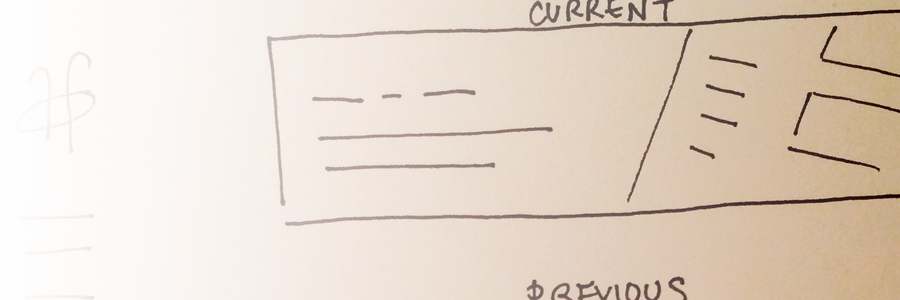 CURRENT
PREVIOUS